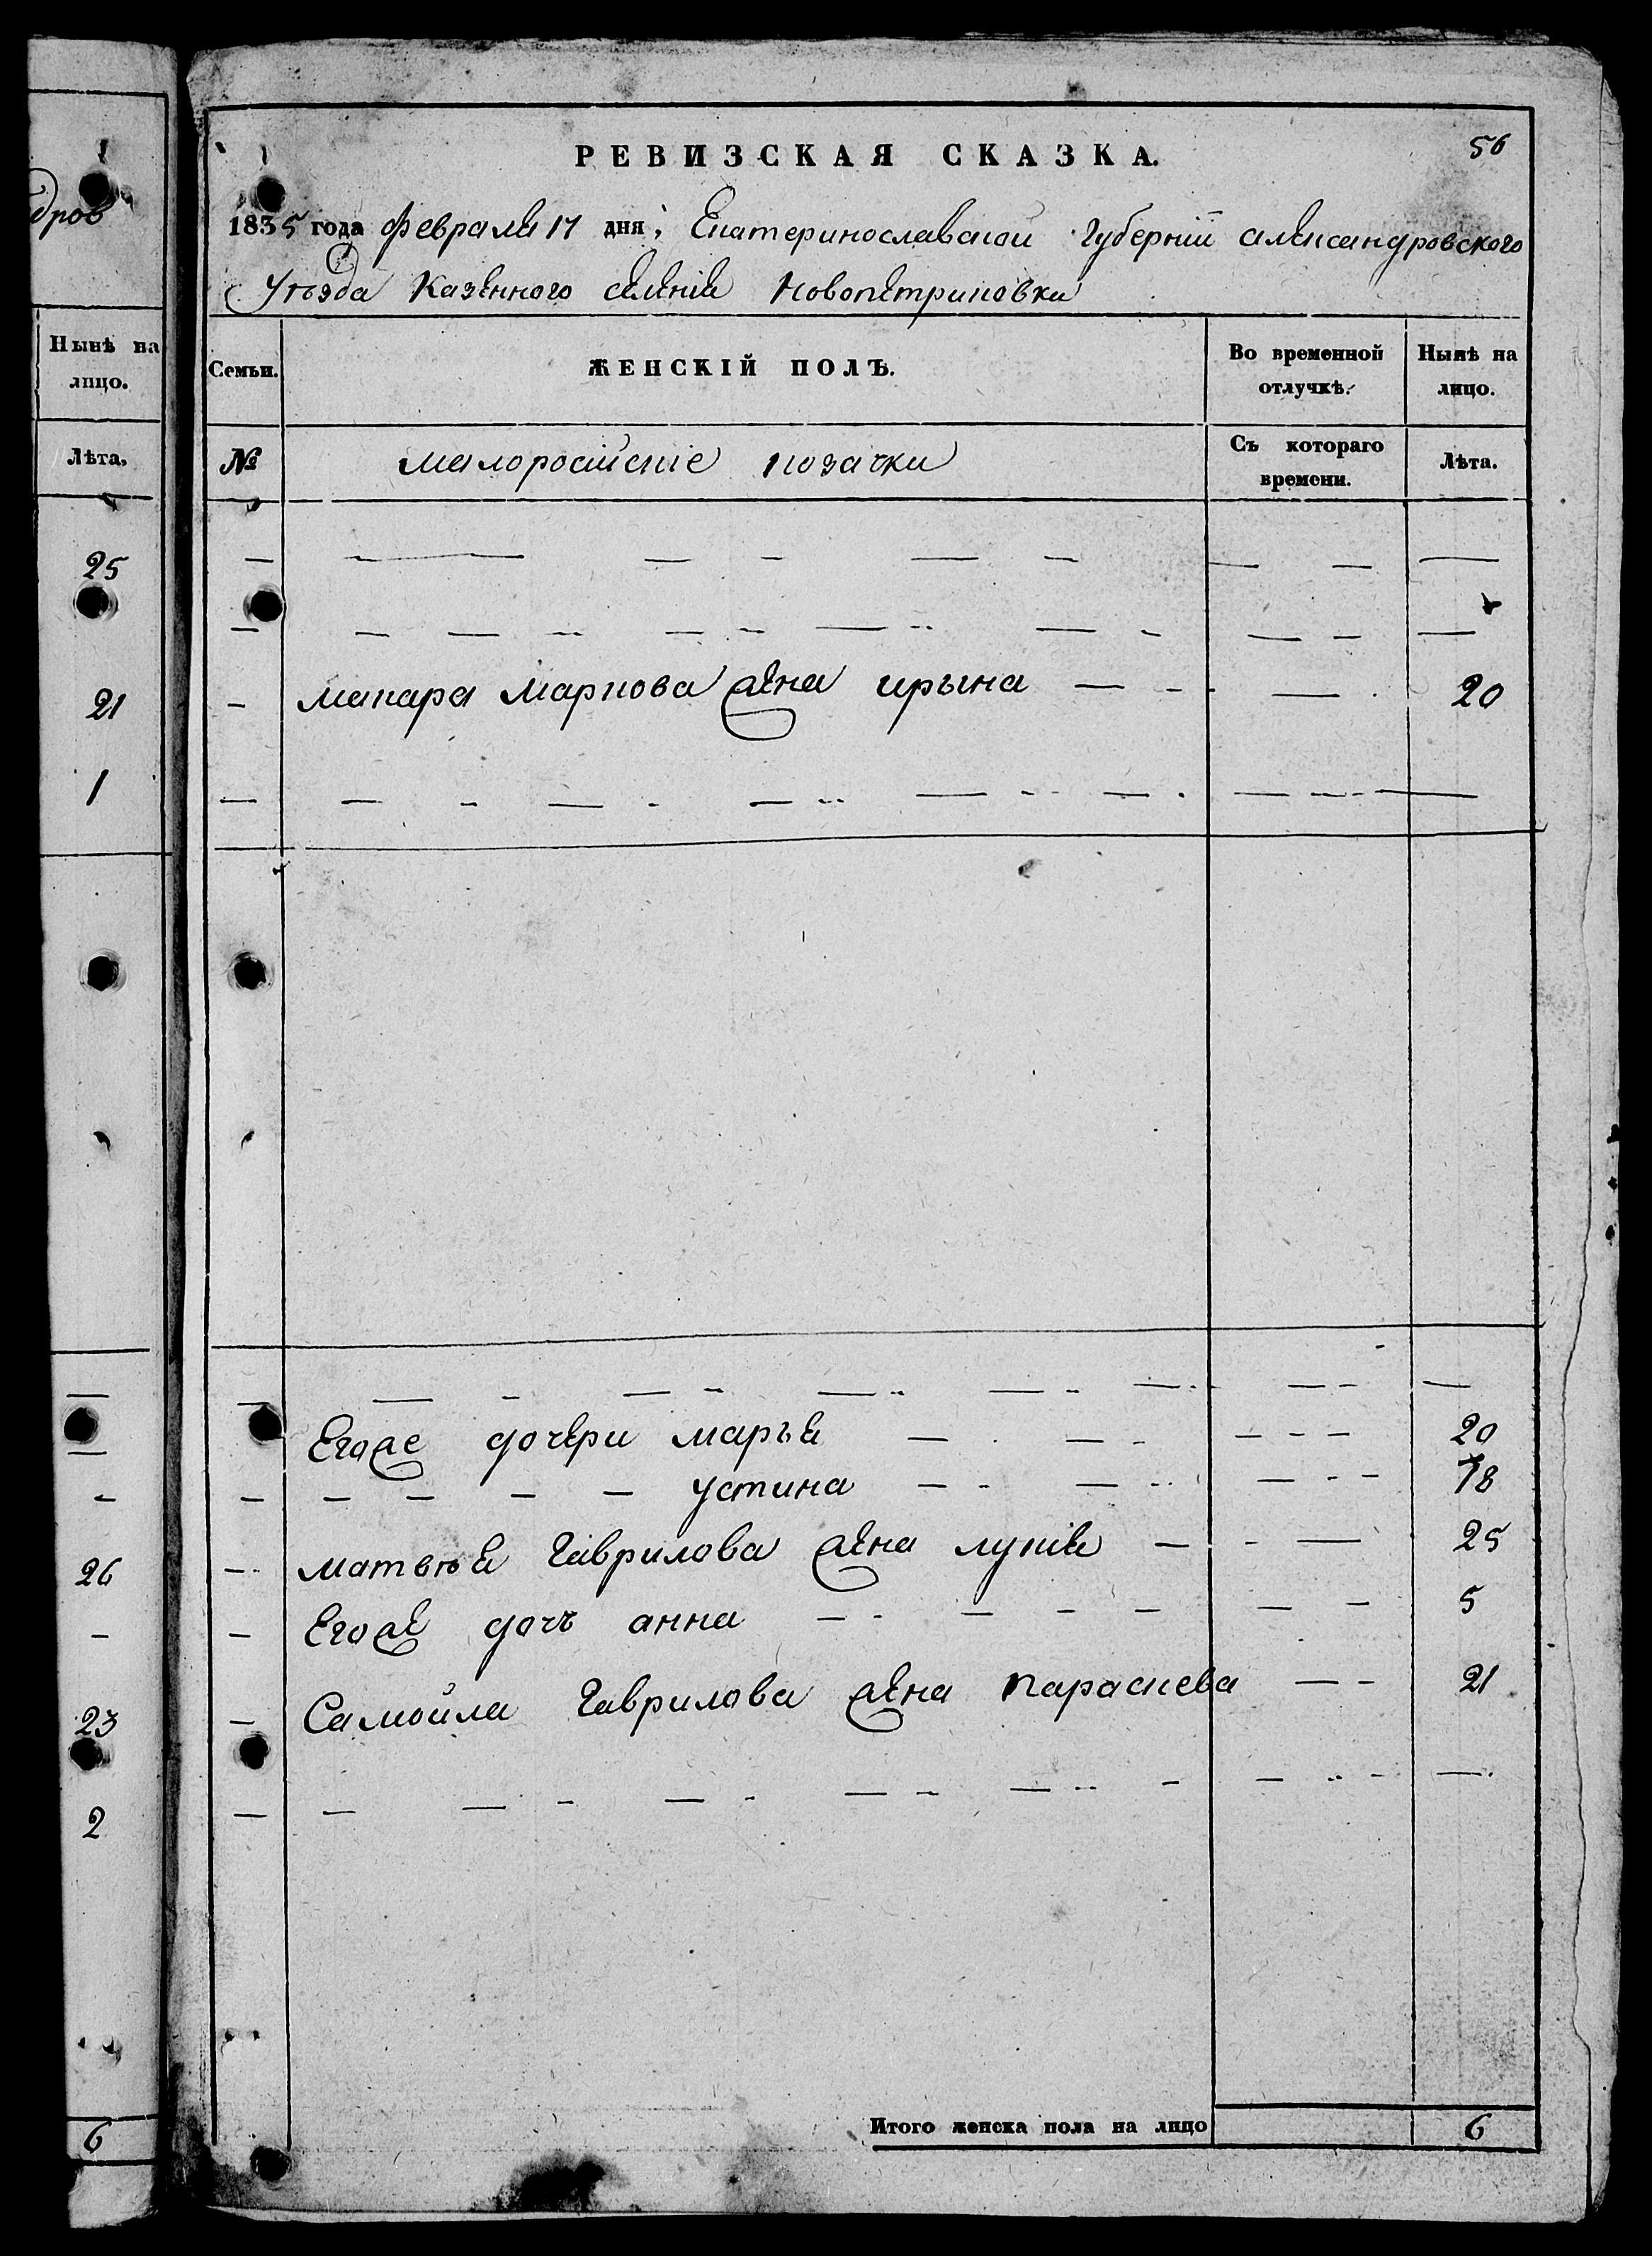 дров
Нынѣ на
лицо.
Лѣта.
25
21
1
—
—
-
26
-
23
2
6
РЕВИЗСКАЯ СКАЗКА. 56
1835 года Февраля 17 дня, Екатеринославской Губерніи александровского
Уѣзда Казенного селенія Новопетриковки
Семьи. ЖЕНСКІЙ ПОЛЪ. Во временной отлучкѣ. Нынѣ на лицо.
№ малоросийскіе козачки Съ котораго времени. Лѣта.
— — — — — — — — —
— — — — — — — — — — —
- макара маркова жена ирына — - — 20
— — - — - — - — - — — — —
— — - — - — - — - — - — - —
Егоже дочери марья — — - — - - 20
- — — — — устина — - — - — - - 18
- матвѣя Гаврилова жена лукія — - — 25
- Егоже дочь анна — - — — — — — 5
- Самойла Гаврилова жена параскева — - 21
— — — - — - — - — - - — - - —
Итого женска пола на лицо 6